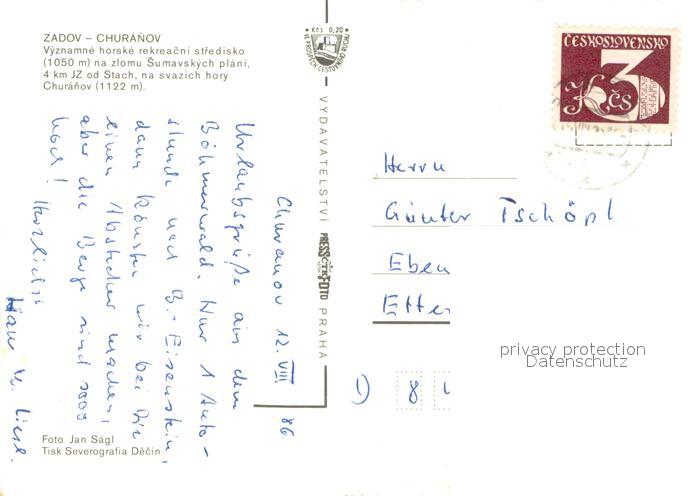 ZADOV – CHURÁŇOV
Významné horské rekreační středisko
(1050 m) na zlomu Šumavských plání,
4 km JZ od Stach, na svazích hory
Churáňov (1122 m).
Kčs 0,20
VE PROSPĚCH CESTOVNÍHO RUCHU
ČESKOSLOVENSKO
3 Kčs
VYDAVATELSTVÍ PRESSFOTO PRAHA
Churanov 12. VIII. 86
Urlaubsgrüße aus dem
Böhmerwald. Nur 1 Auto-
stunde nach B.-Eisenstein,
dann könnten wir bei Dir
einen Abstecher machen,
aber die Berge sind sooo
hoch! Herzlichst
Hans u. Liesl.
Herrn
Günter Tschöpl
Eben
Etter
1) 8
privacy protection
Datenschutz
Foto Jan Ságl
Tisk Severografia Děčín